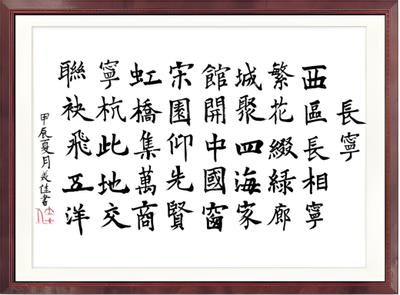 長寧
西區長相寧
繁花綴綠廊
城聚四海家
館開中國窗
宋園仰先賢
虹橋集萬商
寧杭此地交
聯袂飛五洋
甲辰夏月佳書